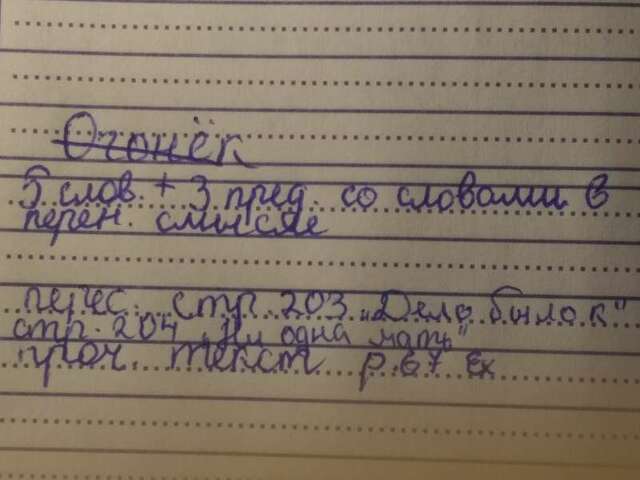 Огонёк
5 слов + 3 пред. со словами в
перен. смысле
перес. стр. 203 „Дело было к"
стр. 204 „Ни одна мать"
проч. текст p. 67 Ex